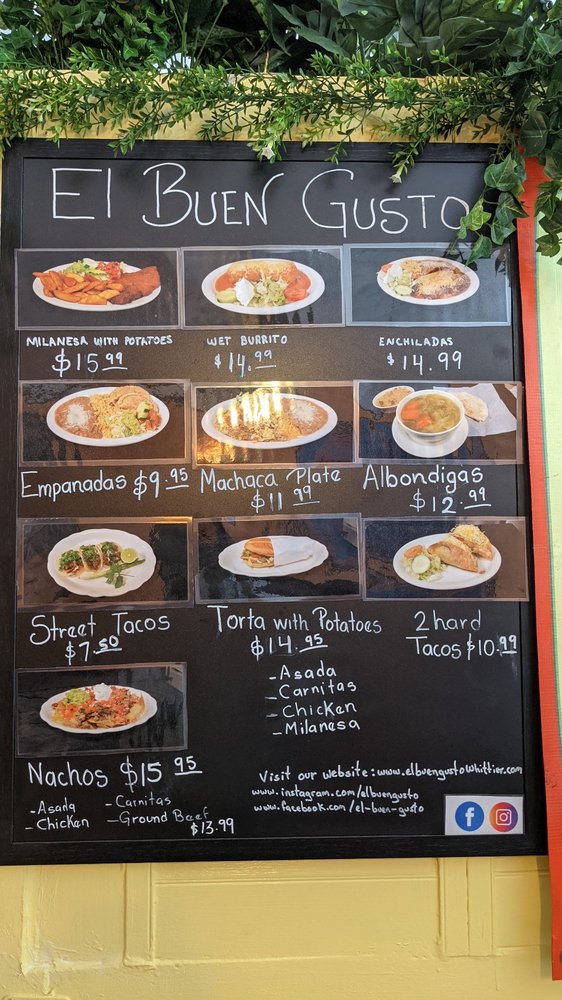 El Buen Gusto
Milanesa with Potatoes
$15.99
Wet Burrito
$14.99
Enchiladas
$14.99
Empanadas $9.95
Machaca Plate
$11.99
Albondigas
$12.99
Street Tacos
$7.50
Torta with Potatoes
$14.95
- Asada
- Carnitas
- Chicken
- Milanesa
2 hard
Tacos $10.99
Nachos $15.95
- Asada
- Chicken
- Carnitas
- Ground Beef
$13.99
Visit our website: www.elbuengustowhittier.com
www.instagram.com/elbuengusto
www.facebook.com/el-buen-gusto